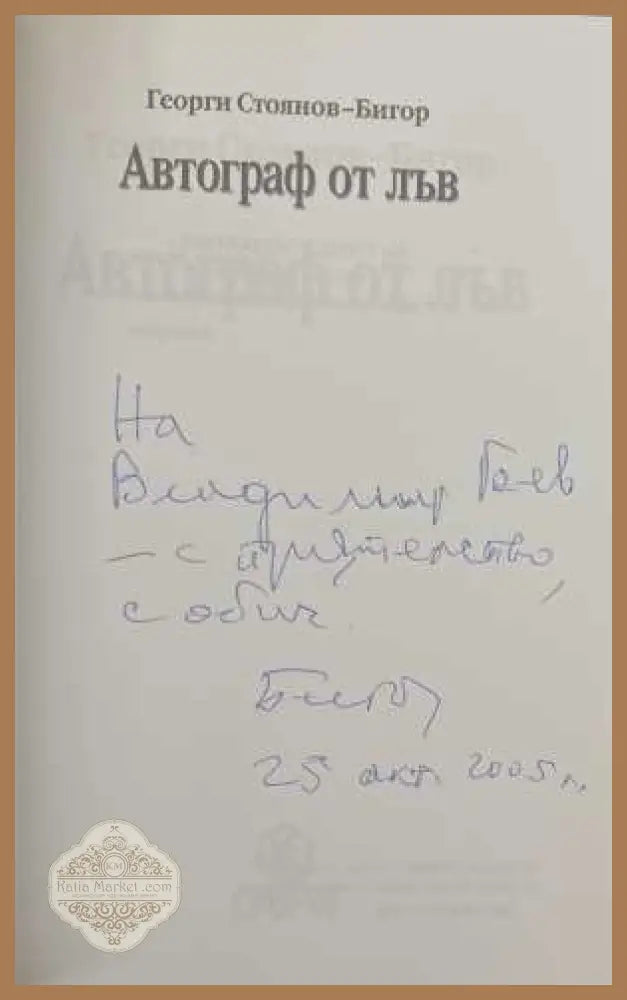 Георги Стоянов–Бигор
Автограф от лъв
На
Владимир Гоев
– с приятелство,
с обич
Бигор
25 окт. 2005 г.
KM
Katia Market .com